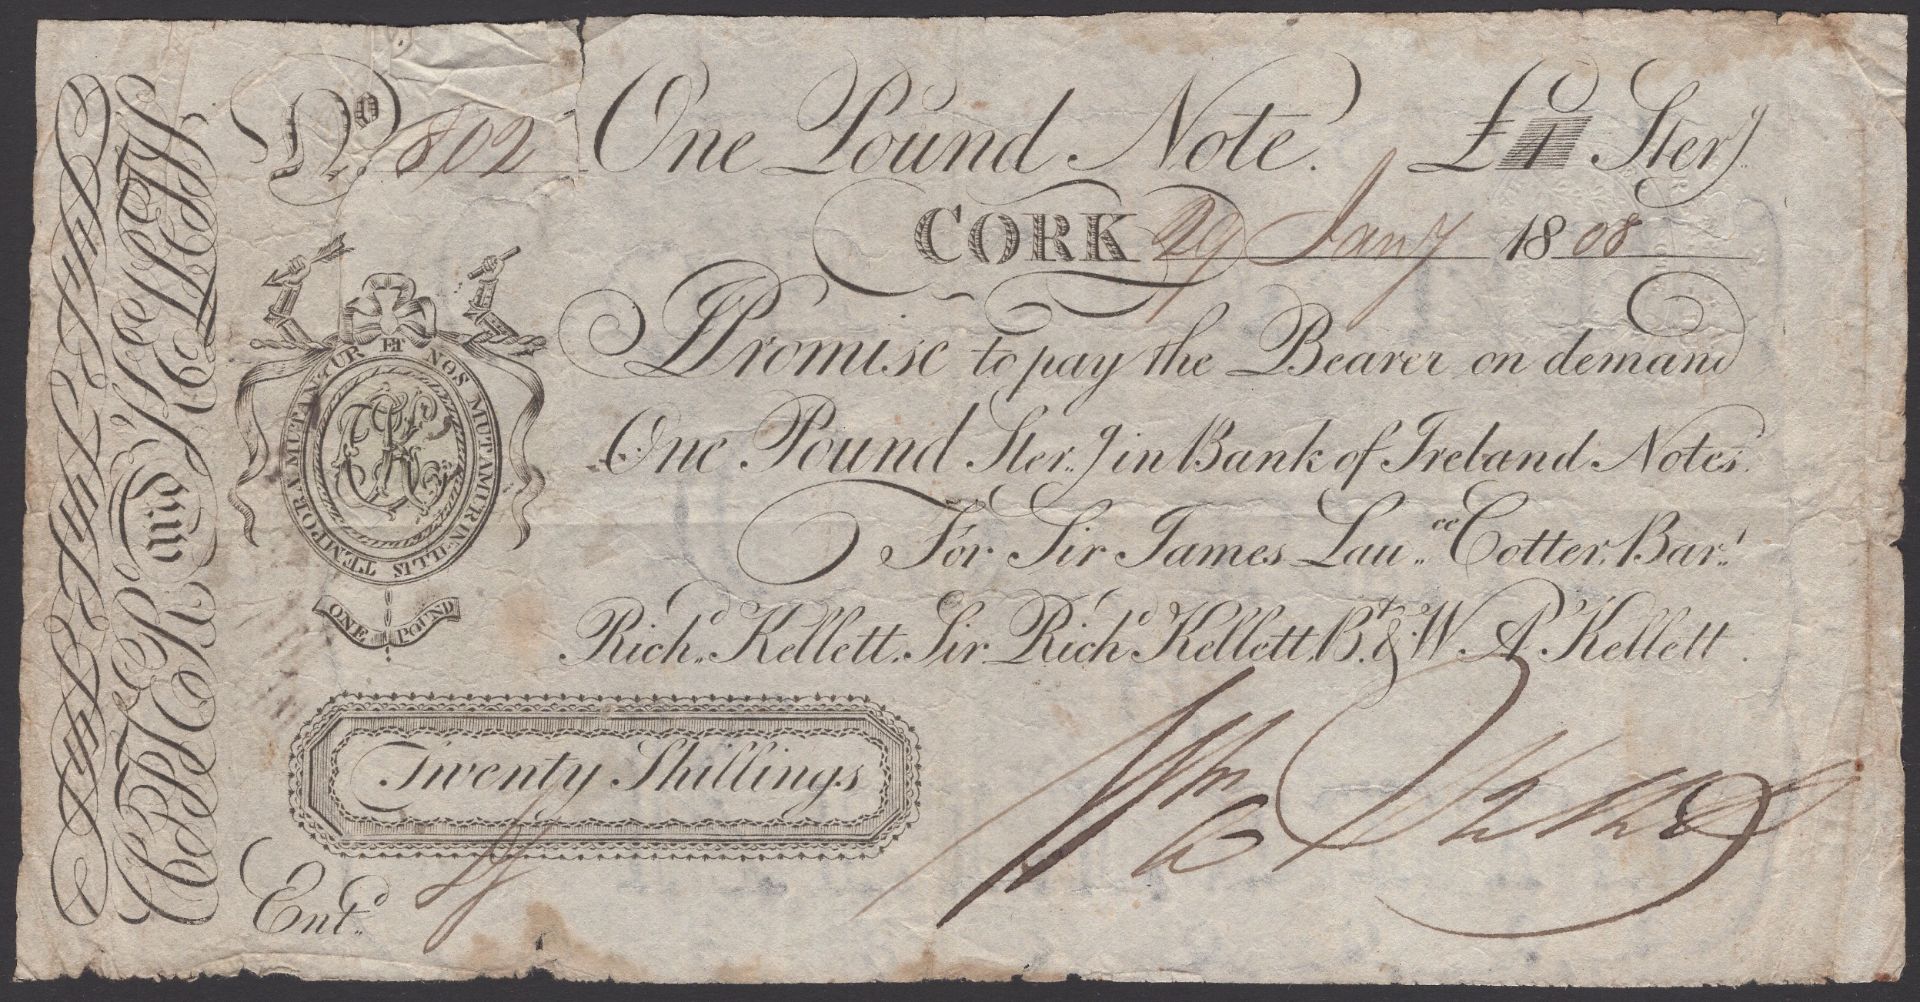 No. 802 One Pound Note. £1 Sterg.
CORK 29 Jany 1808
I Promise to pay the Bearer on demand
One Pound Ster.g in Bank of Ireland Notes.
For Sir James Lau..ce Cotter, Bar.t
Rich.d Kellett, Sir Rich.d Kellett, B.t & W. A. Kellett.
TEMPORA MUTANTUR ET NOS MUTAMUR IN ILLIS
ONE POUND
Twenty Shillings
Ent.d
Wm